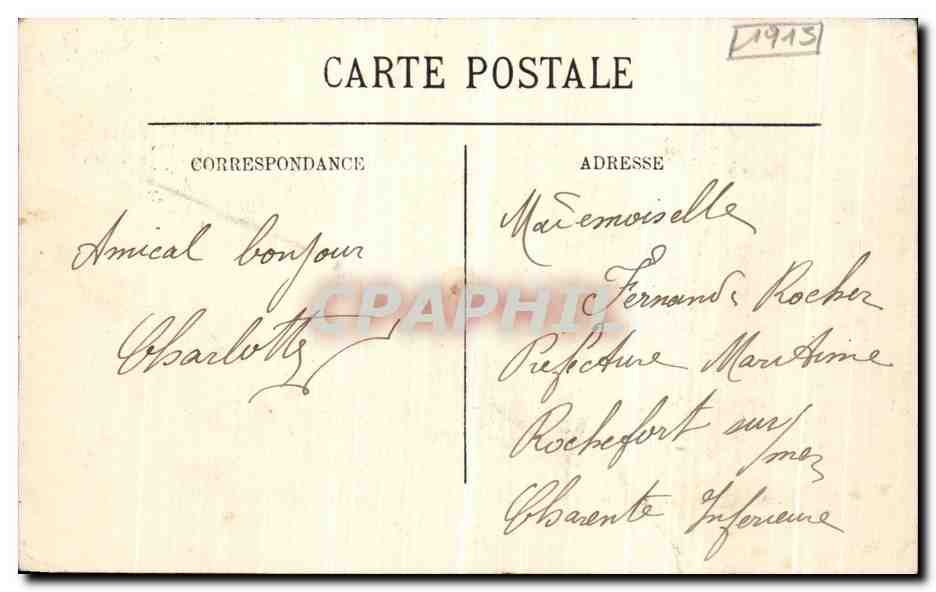 1913
CARTE POSTALE
CORRESPONDANCE
ADRESSE
Amical bonjour
Charlotte
Mademoiselle
Fernande Rocher
Préfecture Maritime
Rochefort sur
mer
Charente Inférieure
CPAPHIL